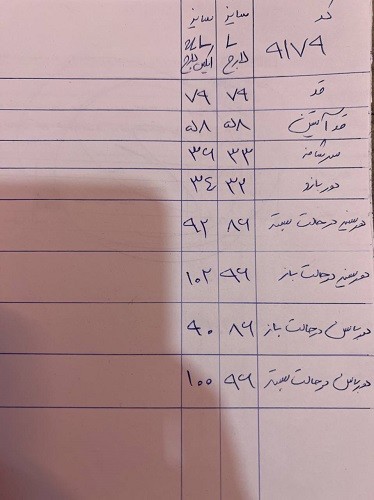 کد سایز سایز
۹۱۷۹ لارج ایکس لارج
قد ۷۹ ۷۹
قد آستین ۵۸ ۵۸
سرشانه ۳۳ ۳۶
دور بازو ۳۲ ۳۴
دور سینه در حالت بسته ۸۶ ۹۲
دور سینه در حالت باز ۹۶ ۱۰۲
دور باسن در حالت باز ۸۶ ۹۰
دور باسن در حالت بسته ۹۶ ۱۰۰